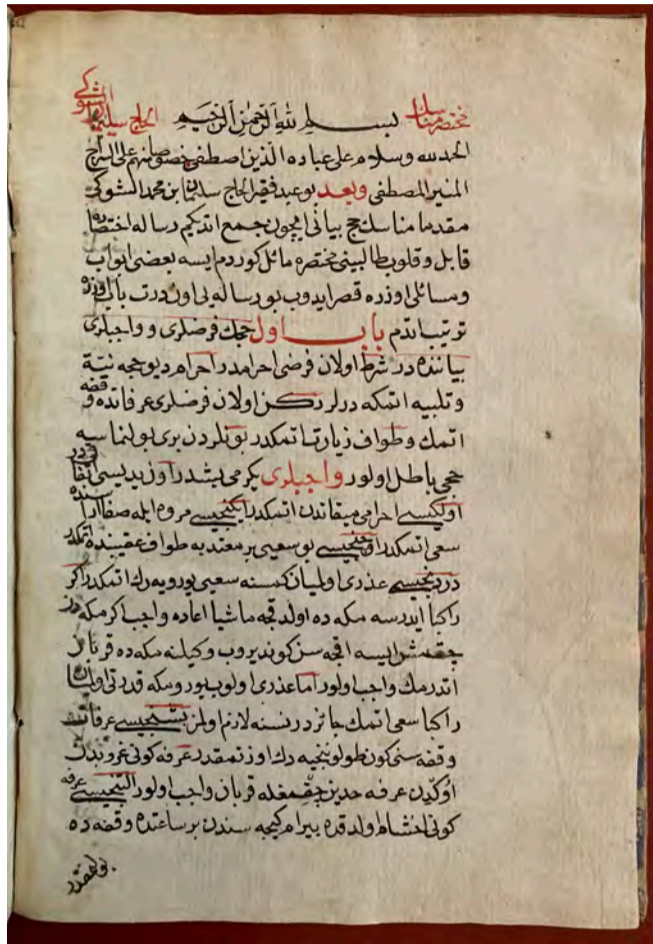 مختصر مناسك بسم الله الرحمن الرحيم الحاج سليمان الشوكى
الحمد لله وسلام على عباده الذين اصطفى خصوصا منهم على السراج
المنير المصطفى وبعد بو عبد فقير الحاج سليمان بن محمد الشوكى
مقدما مناسك حج بيانى ايچون جمع اتديكم رساله اختصاره
قابل و قلوب طالبينى مختصره مائل كوردم ايسه بعضى ابواب
ومسائلى اوزره قصر ايدوب بو رساله يى اون درت باب اوزره
ترتيب اتدم باب اول حجك فرضلرى و واجبلرى
بياننده در شرط اولان فرضى احرامدر احرام ديو حجه نيّة
و تلبيه اتمكه درلر ركن اولان فرضلرى عرفاتده وقفه
اتمك و طواف زيارت اتمكدر بونلردن برى بولنماسه
حجى باطل اولور واجبلرى يكرمى بشدر اوزيديسى
اولكيسى احرامى ميقاتدن اتمكدر ايكنجيسى مروه ايله صفا اراسنده
سعى اتمكدر اوچنجيسى بو سعيى بر معتد به طواف عقبنده اتمكدر
دردنجيسى عذرى اوليان كمسنه سعيى يورويه رك اتمكدر اكر
راكبا ايدرسه مكه ده اولدقجه ماشيا اعاده واجب اكر مكه دن
چقمش ايسه اقچه سن كوندروب وكيلنه مكه ده قربان
اتدرمك واجب اولور اما عذرى اولوب يورومكه قدرتى اوليان
راكبا سعى اتمك جائزدر نسنه لازم اولمز بشنجيسى عرفات
وقفه سنى كون طولوننجيه دك اوزتمقدر عرفه كونى غروبدن
اوكدين عرفه حدين چقمغله قربان واجب اولور التنجيسى عرفه
كونى اخشام اولدقده بيرام كيجه سندن بر ساعتده وقفه ده
بولنمقدر